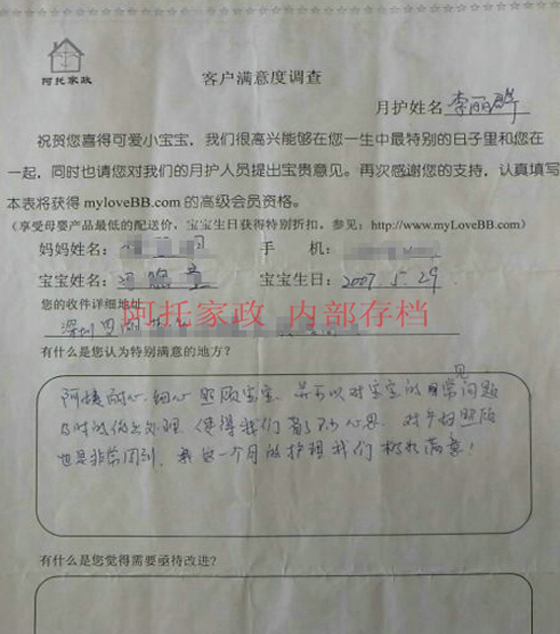 阿托家政
客户满意度调查
月护姓名 李丽群
祝贺您喜得可爱小宝宝，我们很高兴能够在您一生中最特别的日子里和您在
一起，同时也请您对我们的月护人员提出宝贵意见。再次感谢您的支持，认真填写
本表将获得 myloveBB.com 的高级会员资格。
(享受母婴产品最低的配送价，宝宝生日获得特别折扣，参见：http://www.myLoveBB.com）
妈妈姓名： 手 机：
宝宝姓名： 宝宝生日：2007. 5. 29.
您的收件详细地址
阿托家政 内部存档
深圳罗湖
有什么是您认为特别满意的地方？
阿姨耐心、细心照顾宝宝、并可以对宝宝的日常见问题
及时的作出处理，使得我们省了不少心思。对产妇照顾
也是非常周到，这一个月的护理我们都很满意！
有什么是您觉得需要亟待改进？